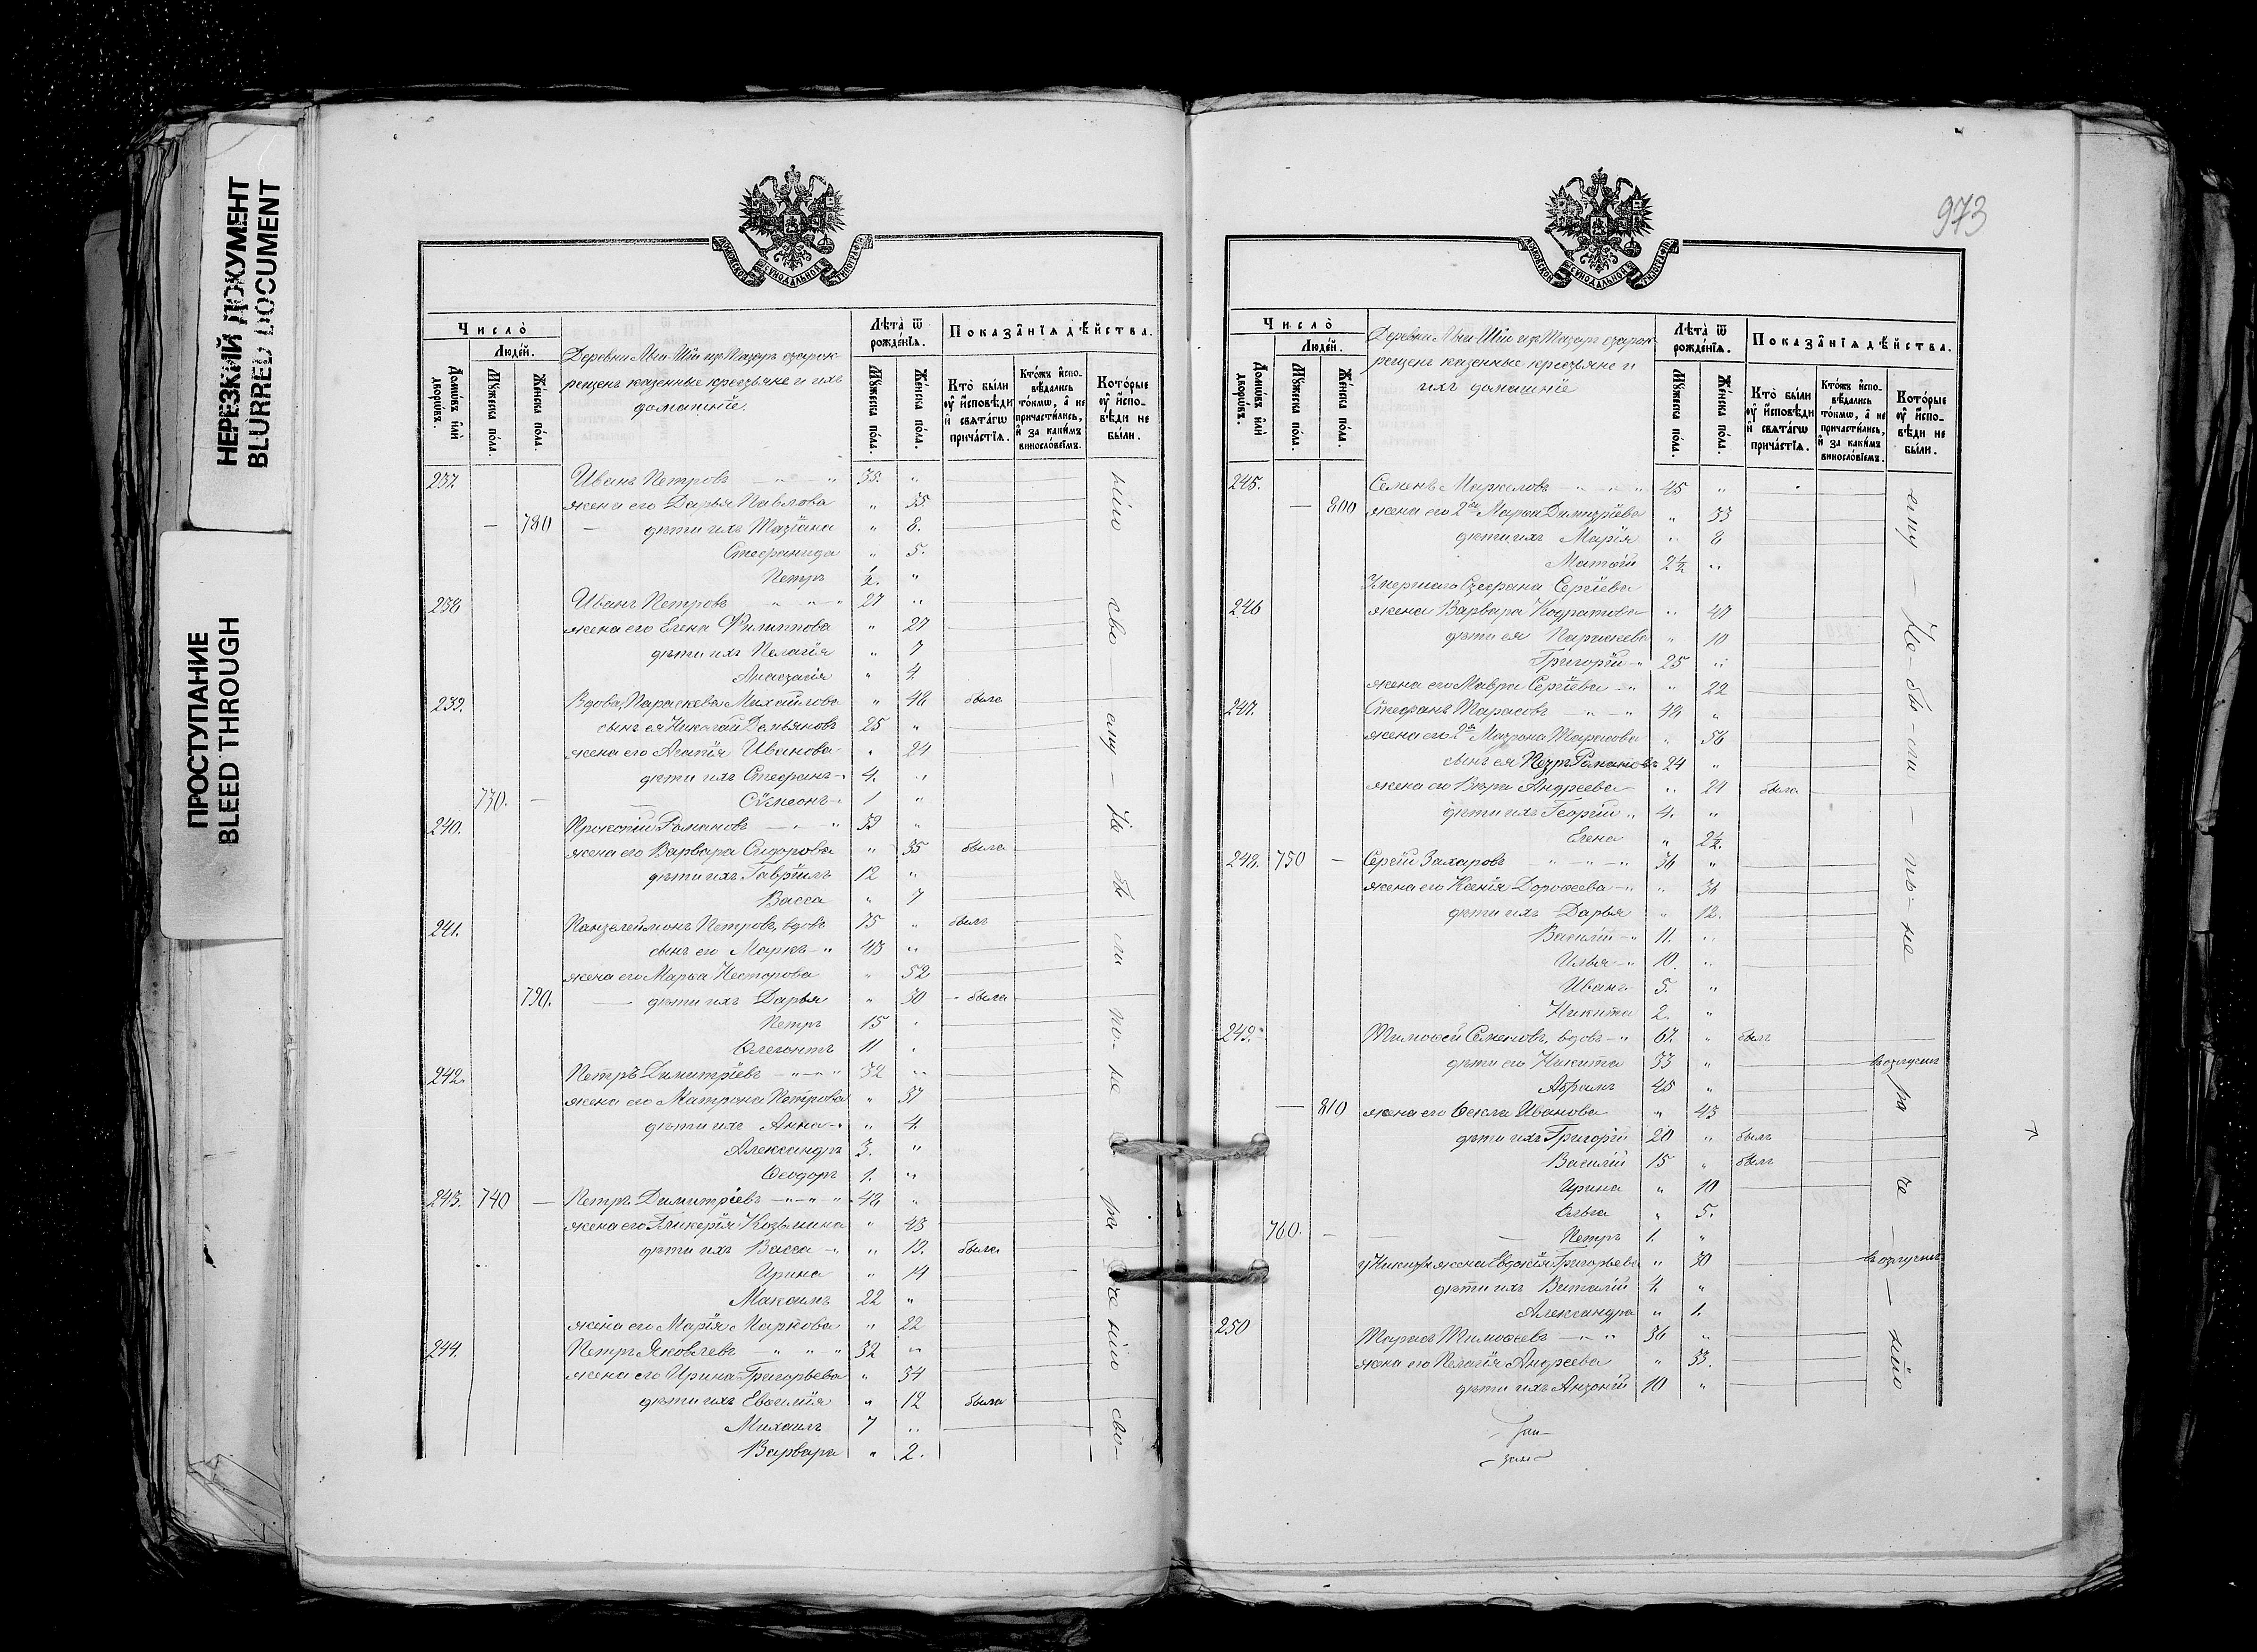 НЕРЕЗКИЙ ДОКУМЕНТ
BLURRED DOCUMENT
ПРОСТУПАНИЕ
BLEED THROUGH
Число̀
Людéй.
Домѡ́въ и҆лѝ дворѡ́въ.
Мꙋ́жеска по́ла.
Же́нска по́ла.
казенные крестьяне и ихъ
домашніе.
Лѣта̀ ѿ рожде́нїѧ.
Мꙋ́жеска по́ла.
Же́нска по́ла.
Показа̑нїѧ дѣ́йства.
Кто̀ были ᲂу҆ и҆сповѣ́ди и҆ свѧта́гѡ прича́стїѧ.
Кто́жъ и҆спо-
вѣ́дались
то́кмѡ, а҆ не
причасти́лись,
и҆ за каки́мъ
винословїемъ.
Кото́рые
ᲂу҆ и҆спо-
вѣ́ди не
бы́ли.
237. Иванъ Петровъ — " — " 38. "
жена его Дарья Павлова " 35.
— 780 — дѣти ихъ Татіана " 8.
Стефанида " 5.
Петръ ½. "
238 Иванъ Петровъ " — " — " 27 "
жена его Елена Филиппова " 27
дѣти ихъ Пелагія " 7
Анастасія " 4
239. Вдова, Параскева Михайлова " 48 была
сынъ ея Николай Демьяновъ 25 "
жена его Агапія Иванова " 24
дѣти ихъ Стефанъ 4. "
730. — Сѵмеонъ 1 "
240. Прокопій Романовъ — " — " 39 "
жена его Варвара Сидорова " 35 была
дѣти ихъ Гавріилъ 12 "
Васса " 7
241. Пантелеймонъ Петровъ, вдовъ 75 " былъ
сынъ его Маркъ " 48 "
жена его Марѳа Несторова " 52
790. — дѣти ихъ Дарья " 30 была
Петръ 15 "
Флегонтъ 11 "
242. Петръ Димитріевъ — " — " 32 "
жена его Матрона Петрова " 37
дѣти ихъ Анна " 4.
Александръ 3. "
Ѳеодоръ 1. "
243. 740 — Петръ Димитріевъ — " — " 48 "
жена его Гликерія Козьмина " 43
дѣти ихъ Васса " 19. была
Ирина " 14
Максимъ 22 "
жена его Марія Маркова " 22
244. Петръ Яковлевъ — " — " 32 "
жена его Ирина Григорьева " 34
дѣти ихъ Евѳимія " 12 была
Михаилъ 7 "
Варвара " 2.
973
Число̀
Людéй.
Домѡ́въ и҆лѝ дворѡ́въ.
Мꙋ́жеска по́ла.
Же́нска по́ла.
казенные крестьяне и
ихъ домашніе
Лѣта̀ ѿ рожде́нїѧ.
Мꙋ́жеска по́ла.
Же́нска по́ла.
Показа̑нїѧ дѣ́йства.
Кто̀ были ᲂу҆ и҆сповѣ́ди и҆ свѧта́гѡ прича́стїѧ.
Кто́жъ и҆спо-
вѣ́дались
то́кмѡ, а҆ не
причасти́лись,
и҆ за каки́мъ
винословїемъ.
Кото́рые
ᲂу҆ и҆спо-
вѣ́ди не
бы́ли.
245. Семенъ Маркеловъ — " — " 45 "
— 800 жена его 2я Марѳа Димитріева " 33
дѣти ихъ Марія " 8
Матѳій 2½ "
Умершаго Стефана Сергіева
246 жена Варвара Кодратова " 47
дѣти ея Параскева " 10
Григорій 25 "
жена его Мавра Сергіева " 22
247. Стефанъ Тарасовъ — " — " 48 "
жена его 2я Матрона Тарасова " 56
сынъ ея Петръ Романовъ 24 "
жена его Вѣра Андреева " 24 была
дѣти ихъ Георгій 4. "
Елена " 2½.
248. 750 — Сергій Захаровъ " — " — " 36 "
жена его Ксенія Дороѳеева " 36
дѣти ихъ Дарья " 12.
Василій 11. "
Илья 10. "
Иванъ 5. "
Никита 2. "
249. Тимоѳей Семеновъ, вдовъ 67. " былъ
дѣти его Никита 33 " въ отлучкѣ
Абрамъ 45 "
— 810 жена его Ѳекла Иванова " 43
дѣти ихъ Григорій 20 " былъ
Василій 15 " былъ
Ирина " 10
Ольга " 5.
760. — Петръ 1. "
у Никиты жена Евдокія Григорьева " 30 въ отлучкѣ
дѣти ихъ Виталій 4. "
Александра " 1.
250 Тарасъ Тимоѳеевъ — " — " 36 "
жена его Пелагія Андреева " 33.
дѣти ихъ Антоній 10 "